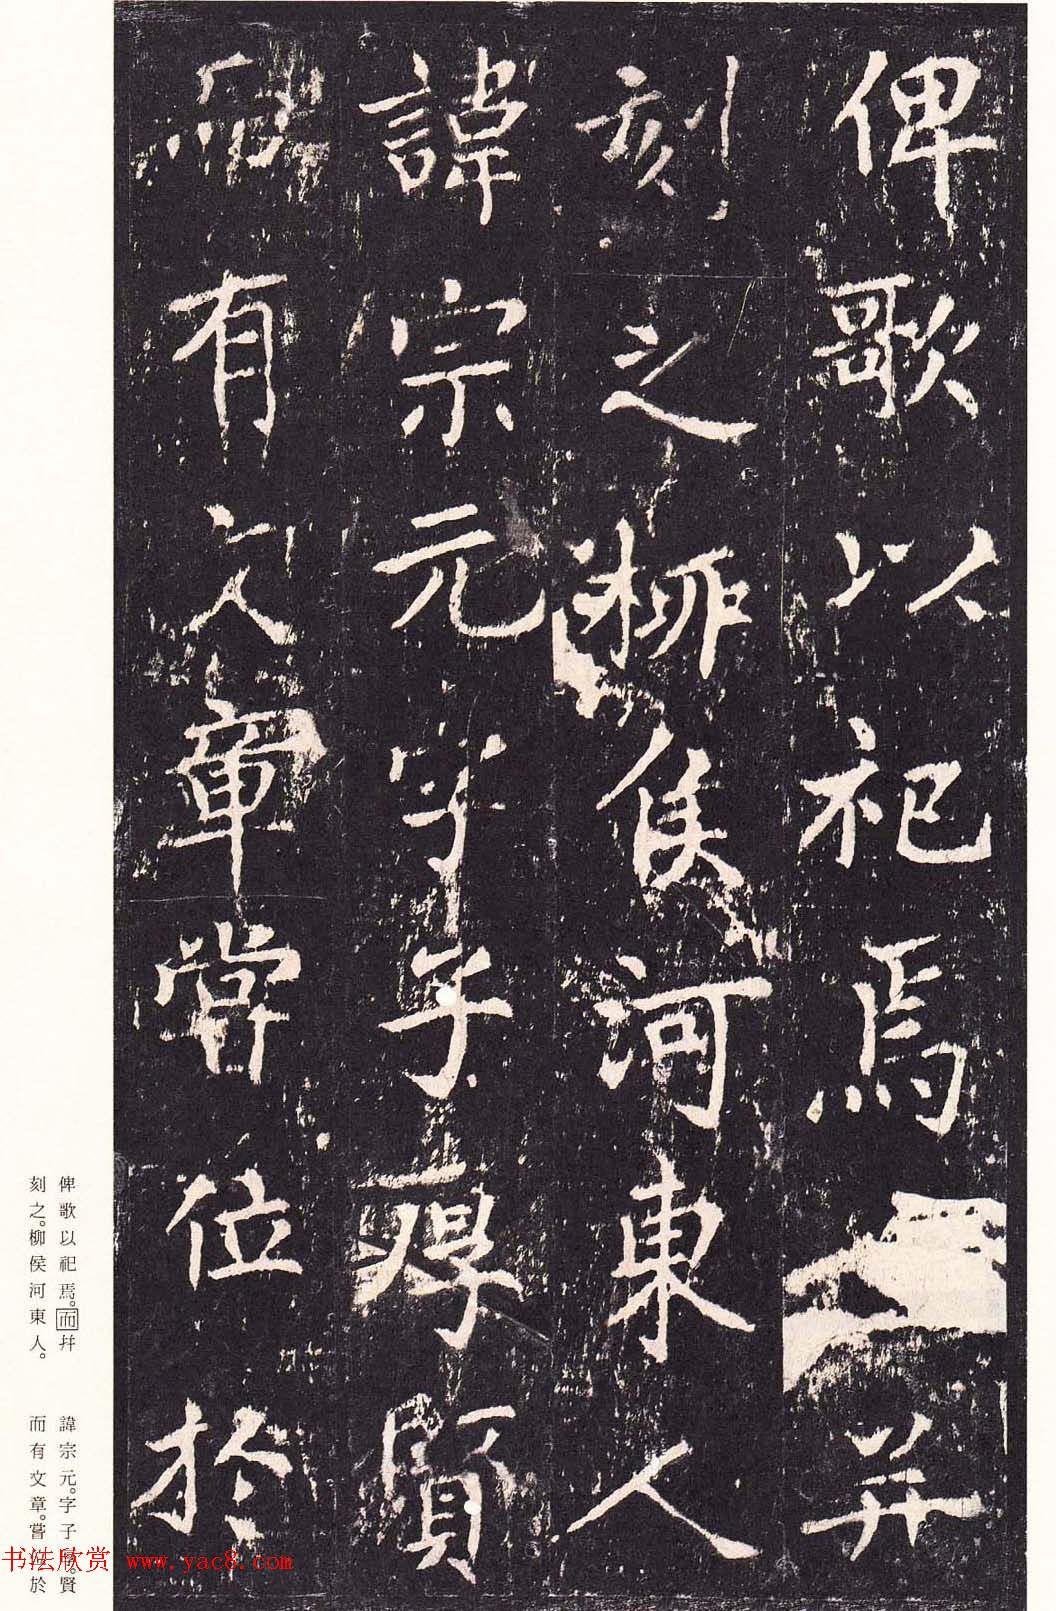 俾歌以祀焉并
刻之柳侯河東人
諱宗元字子厚賢
而有文章嘗位於
俾歌以祀焉。而幷
刻之。柳侯河東人。
諱宗元。字子厚。賢
而有文章。嘗位於
书法欣赏 www.yac8.com